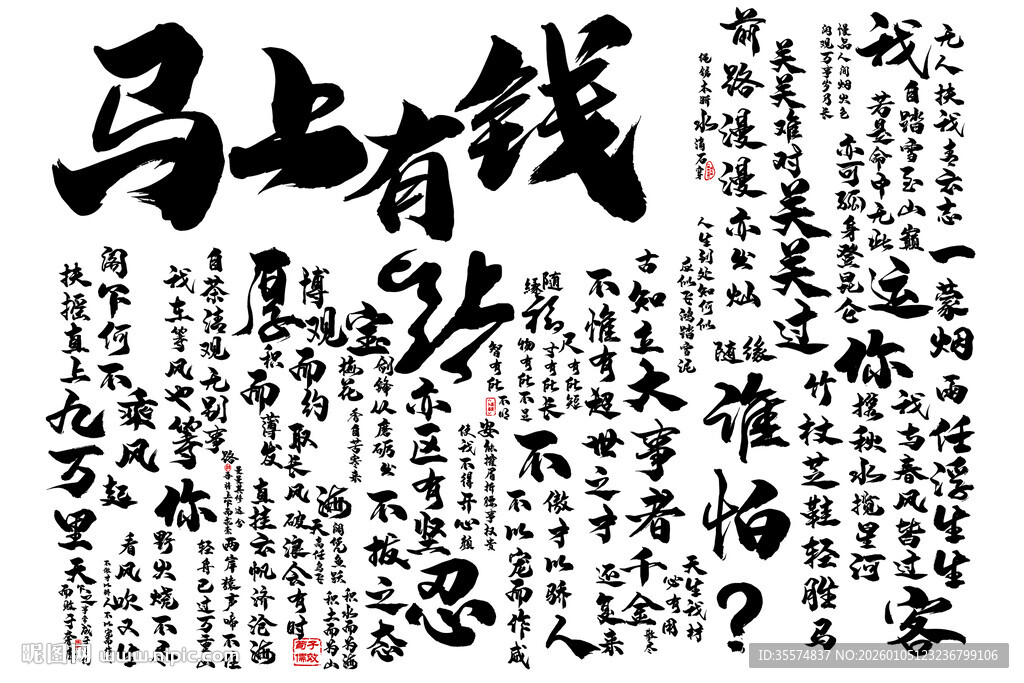 马上有钱
无人扶我青云志
我自踏雪至山巅
若是命中无此运
亦可孤身登昆仑
慢品人间烟火色
闲观万事岁月长
关关难对关关过
前路漫漫亦灿灿
绳锯木断
水滴石穿
一蓑烟雨任浮生
你我与春风皆过客
你携秋水揽星河
竹杖芒鞋轻胜马
谁怕?
随缘
人生到处知何似
应似飞鸿踏雪泥
古知立大事者
不惟有超世之才
还复来
千金散
天生我材必有用
随缘
尺有所短
寸有所长
物有所不足
智有所不明
不以宠而作威
不傲才以骄人
安能摧眉折腰事权贵
使我不得开心颜
亦区有坚忍不拔之态
宝剑锋从磨砺出
梅花香自苦寒来
博观而约取
厚积而薄发
长风破浪会有时
直挂云帆济沧海
海阔凭鱼跃
天高任鸟飞
积水而为海
积土而为山
自茶清观无别事
我在等风也等你
两岸猿声啼不住
轻舟已过万重山
闲乍何不乘风起
扶摇直上九万里
野火烧不尽
看风吹又生
昵图网 www.nipic.com
ID:35574837 NO:20260105123236799106